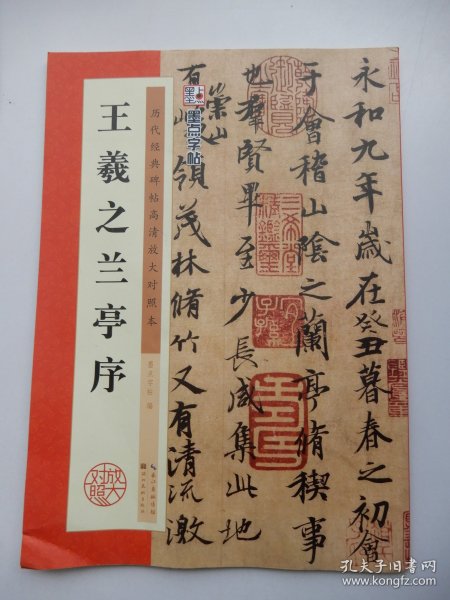 永和九年歲在癸丑暮春之初會
于會稽山陰之蘭亭脩稧事
也羣賢畢至少長咸集此地
有崇山
領茂林脩竹又有清流激
墨点字帖
历代经典碑帖高清放大对照本
王羲之兰亭序
墨点字帖 编
放大对照
长江出版传媒
湖北美术出版社
孔夫子旧书网
www.kongfz.com